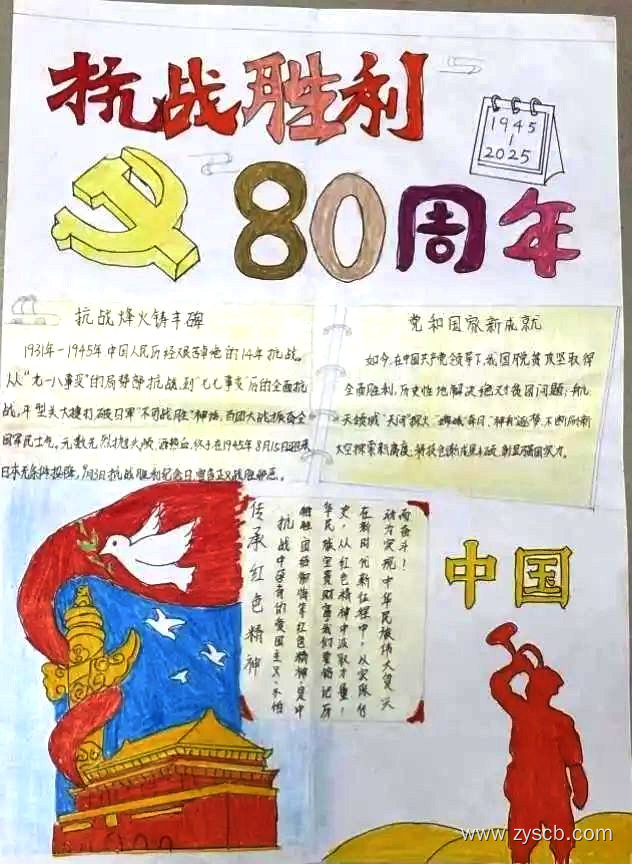 抗战胜利
1945
|
2025
80周年
抗战烽火铸丰碑
1931年-1945年中国人民历经艰苦卓绝的14年抗战。
从"九一八事变"的局部抗战,到"七七事变"后的全面抗
战,平型关大捷打破日军"不可战胜"神话,百团大战振奋全
国军民士气。无数先烈抛头颅、洒热血,终于在1945年8月15日迎来
日本无条件投降。9月3日抗战胜利纪念日,
党和国家新成就
如今,在中国共产党领导下,我国脱贫攻坚取得
全面胜利,历史性地解决绝对贫困问题;航
天领域"天问"探火、"嫦娥"奔月、"神舟"逐梦,不断刷新
太空探索新高度,科技创新成果丰硕,彰显强国实力。
传承红色精神
抗战中孕育的爱国主义、不怕
牺牲、团结御侮等红色精神,是中
华民族宝贵财富。我们要铭记历
史,从红色精神中汲取力量!
在新时代新征程中,以实际行
动为实现中华民族伟大复兴
而奋斗!
中国
www.zyscb.com